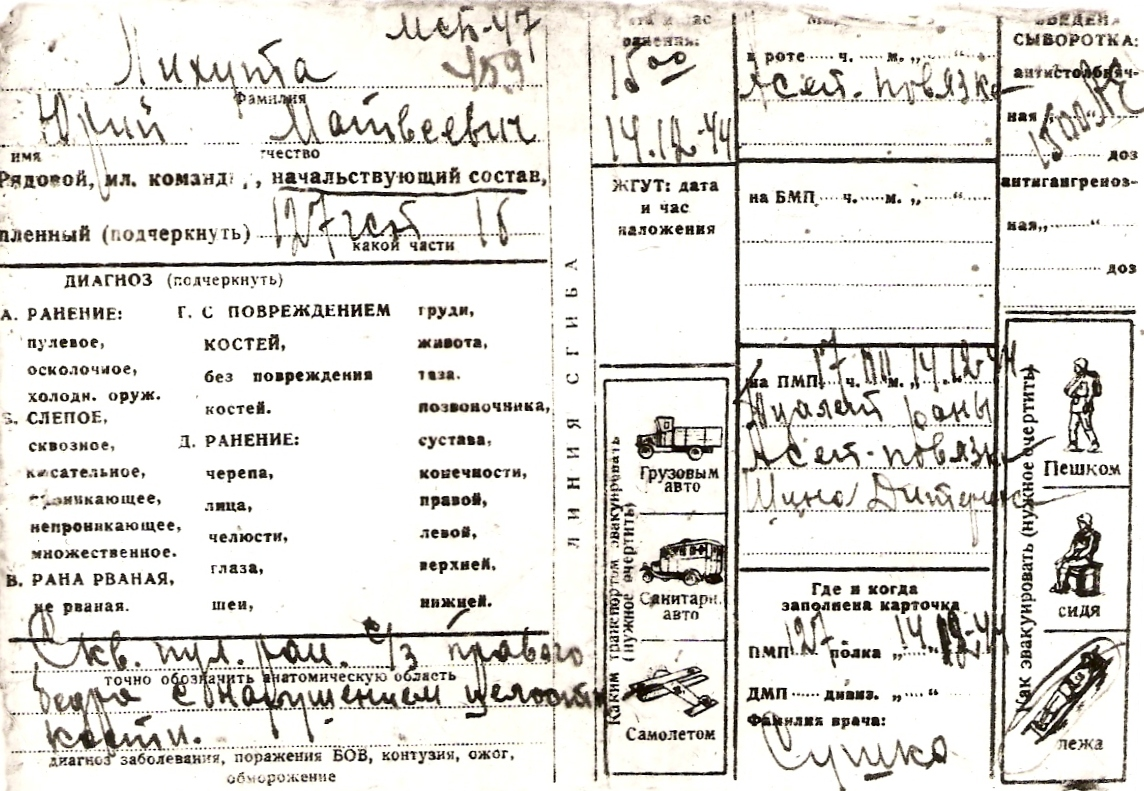 МСБ-47
Лихута
159
Фамилия
Юрий Матвеевич
имя
Рядовой, мл. команд , начальствующий состав,
пленный (подчеркнуть) 127 гсп 1б
какой части
ДИАГНОЗ (подчеркнуть)
А. РАНЕНИЕ:
пулевое,
осколочное,
холодн. оруж.
Б. СЛЕПОЕ,
сквозное,
касательное,
проникающее,
непроникающее,
множественное.
В. РАНА РВАНАЯ,
не рваная.
Г. С ПОВРЕЖДЕНИЕМ
КОСТЕЙ,
без повреждения
костей.
Д. РАНЕНИЕ:
черепа,
лица,
челюсти,
глаза,
шеи,
груди,
живота,
таза.
позвоночника,
сустава,
конечности,
правой,
левой,
верхней,
нижней.
Скв. пул. ран. ч/з правого
точно обозначить анатомическую область
бедра с нарушением целости
кости.
диагноз заболевания, поражения БОВ, контузия, ожог,
обморожение
ЛИНИЯ СГИБА
ранения:
15⁰⁰
14.12-44
ЖГУТ: дата
и час
наложения
Каким транспортом эвакуировать
(нужное очертить)
Грузовым
авто
Санитарн.
авто
Самолетом
в роте ч. м. „ “
Асеп. повязка
на БМП ч. м. „ “
на ПМП 17 ч. м. „14.12-44
Туалет раны
Асеп-повязка
Шина Дитерихса
Где и когда
заполнена карточка
ПМП 127 полка „ 14.12-44
ДМП дивиз. „ “
Фамилия врача:
Сушко
ВВЕДЕНА
СЫВОРОТКА:
антистолбняч-
ная 1500 АЕ
доз
антигангреноз-
ная „ “
доз
Как эвакуировать (нужное очертить)
Пешком
сидя
лежа